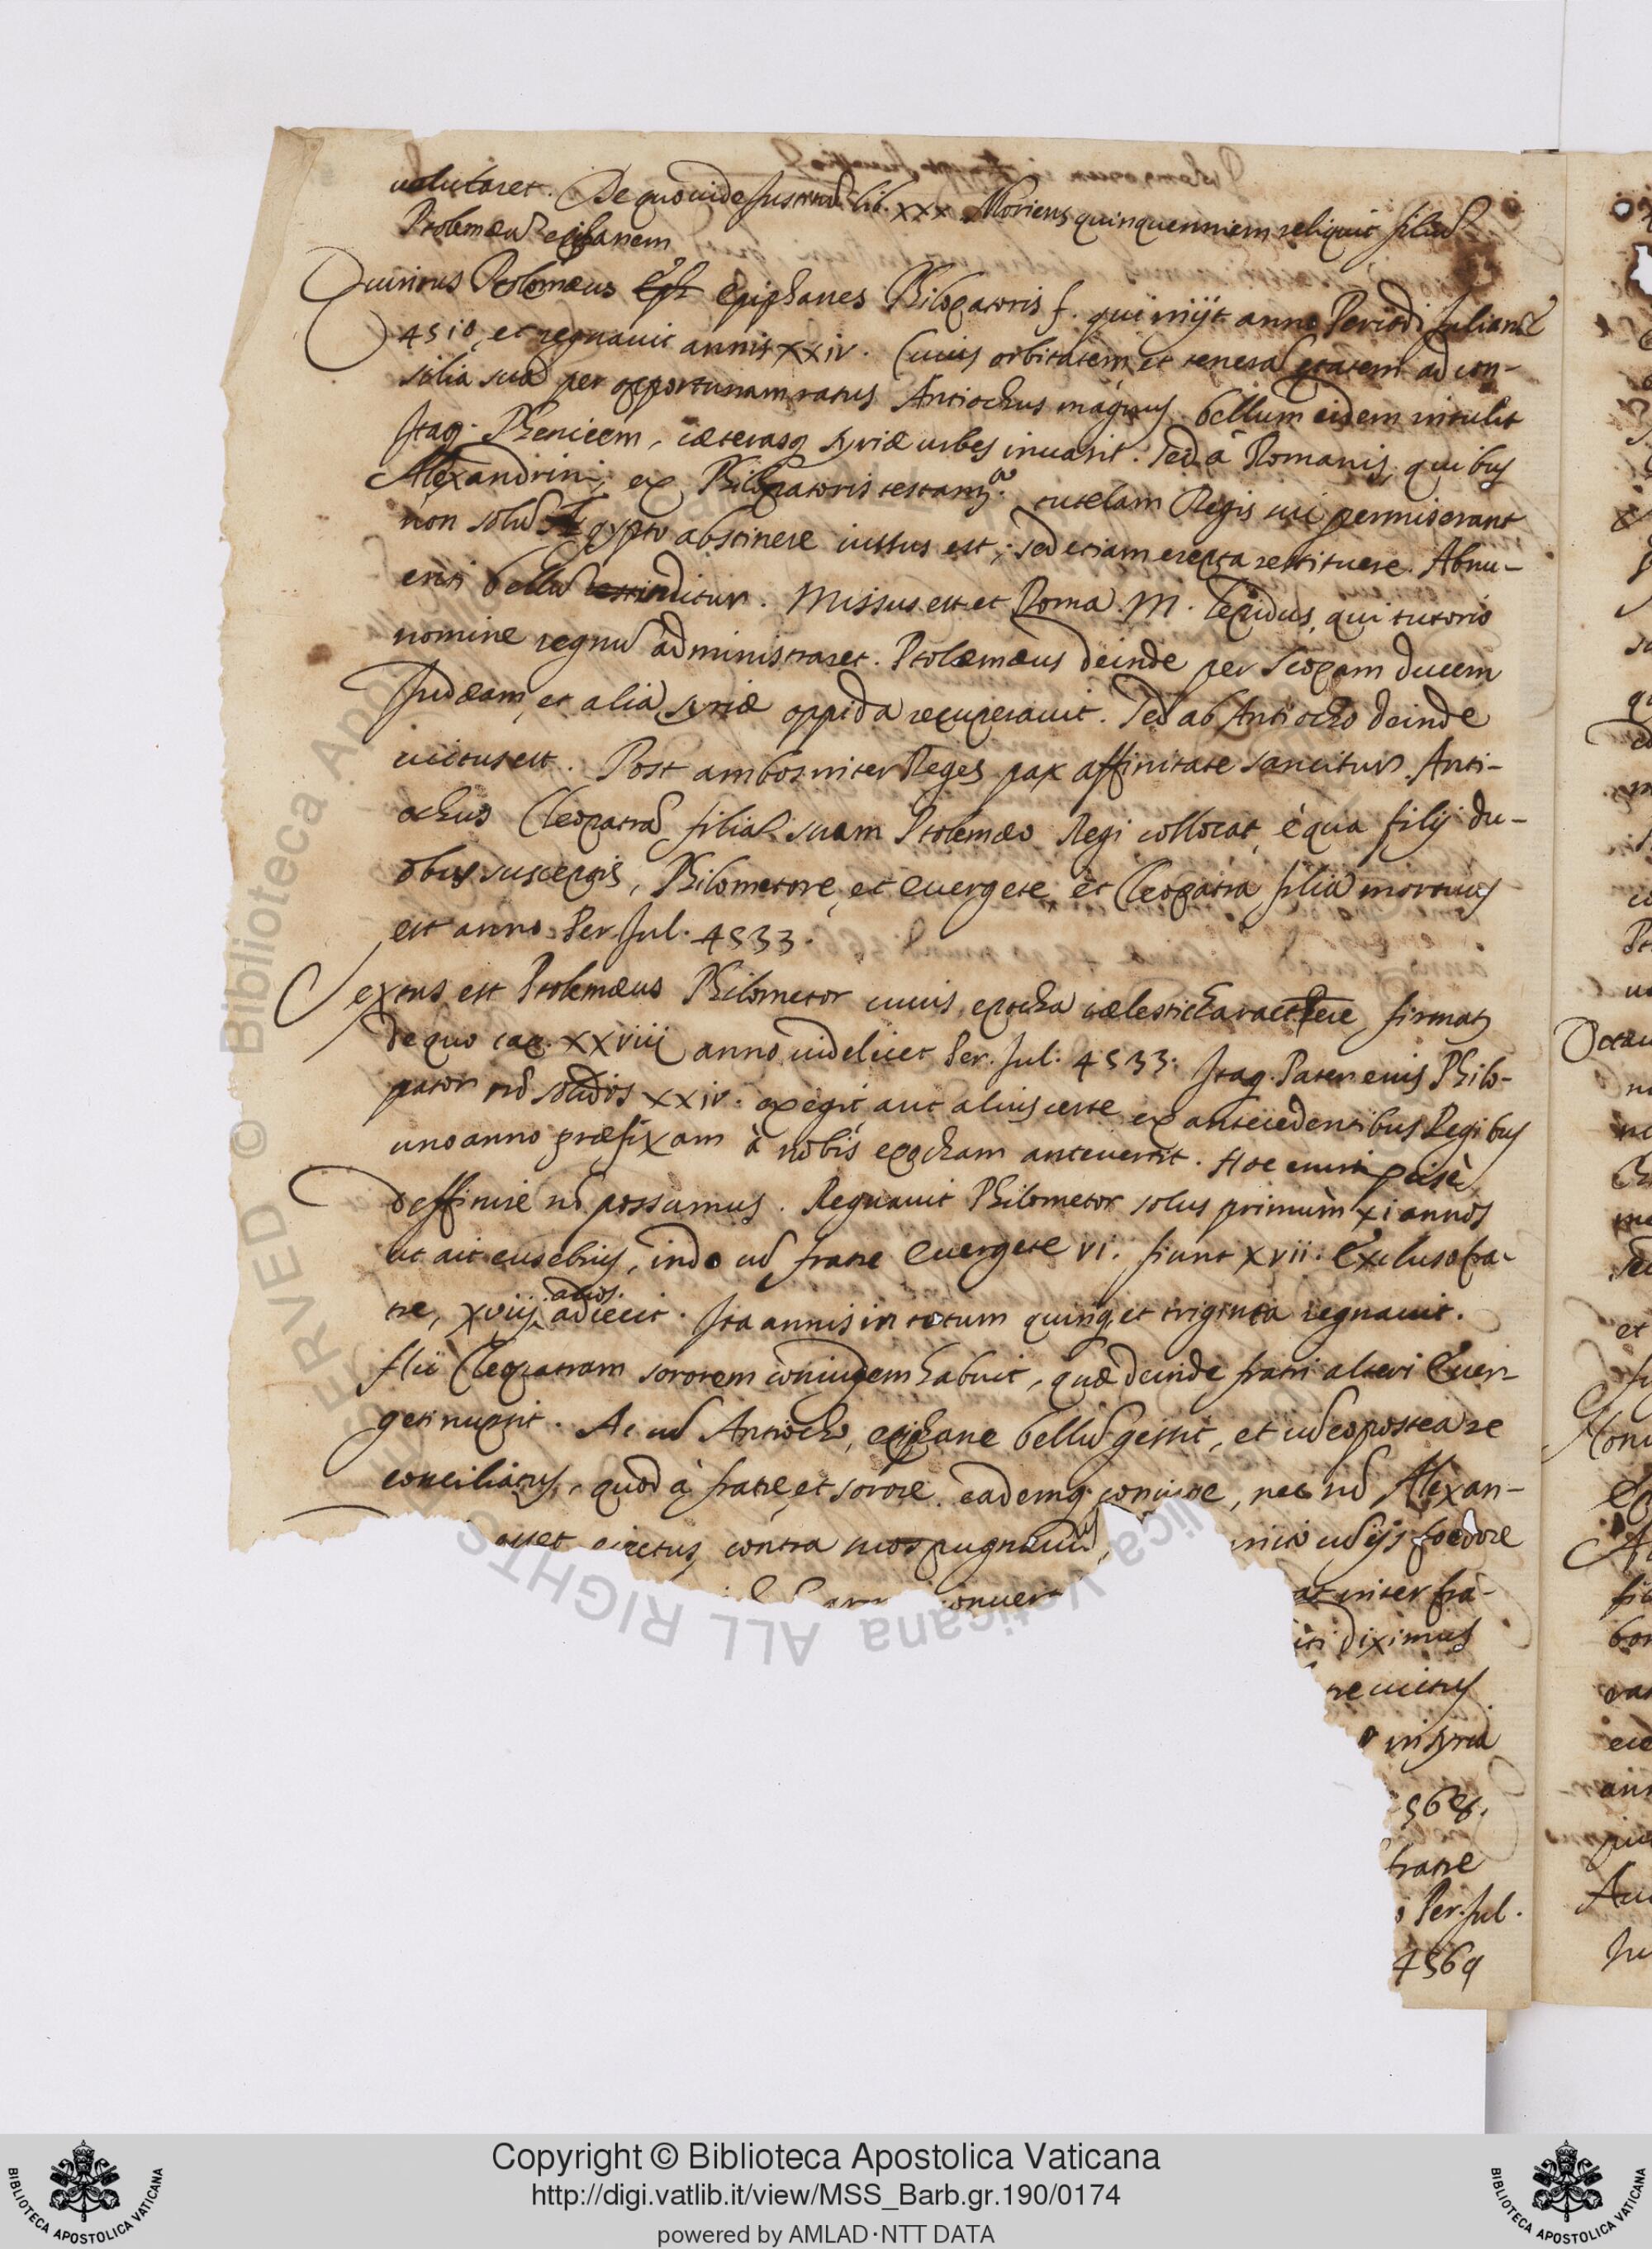 uolutaret. De quo uide Justinū lib. xxx. Moriens quinquennem reliquit filiū
Ptolemæū epiphanem
Quintus Ptolemæus Epiphanes Philopatoris f. qui inijt anno Periodi Julianæ
4510, et regnauit annis xxiv. Cuius orbitatem et tenerā ætatem ad con-
silia sua per opportunam ratus Antiochus magnus, bellum eidem intulit
Itaq. Phenicem, cæterasq Syriæ urbes inuasit. Sed à Romanis, quibus
Alexandrini, ex Philopatoris testamto. tutelam Regis sui permiserant
non solū Ægypto abstinere iussus est, sed etiam erepta restituere. Abnu-
enti bellū inditur. Missus est et Roma M. Lepidus, qui tutorio
nomine regnū administraret. Ptolæmæus deinde per Scopam ducem
Judæam, et alia Syriæ oppida recuperauit. Sed ab Antiocho deinde
uictus est. Post ambos inter Reges pax affinitate sancitur. Anti-
ochus Cleopatrā filiā suam Ptolemæo Regi collocat, è qua filij du-
obus susceptis, Philometore, et Euergete, et Cleopatra filia mortuus
est anno Per. Jul. 4533.
Sextus est Ptolemæus Philometor cuius epocha cælesti charactere firmat
de quo cap. xxviij anno uidelicet Per. Jul. 4533. Itaq. Pater eius Philo-
pator nō solidos xxiv. exegit aut alius certe ex antecedentibus Regibus
uno anno præfixam à nobis epocham anteuertit. Hoc enim
deffinire nō possumus. Regnauit Philometor solus primùm xi annos
ut ait eusebius, inde cū fratre Euergete vi. fiunt xvii. Excluso fra-
tre, xviij annos adiecit. Ita annis in totum quinq et triginta regnauit.
Cleopatram sororem coniugem habuit, quæ deinde fratri alteri Euer-
geti nupsit. Ac cū Antiocho, epiphane bellū gessit, et cū eo postea re
conciliatus, quod à fratre, et sorore eademq coniuge, nec nō Alexan-
esset eiectus, contra hos pugnauit, inito cū ijs foedore
conuert at inter fra-
uti diximus
re uictus
in Syria
568.
fratre
Per. Jul.
4569
Copyright © Biblioteca Apostolica Vaticana
http://digi.vatlib.it/view/MSS_Barb.gr.190/0174
powered by AMLAD·NTT DATA